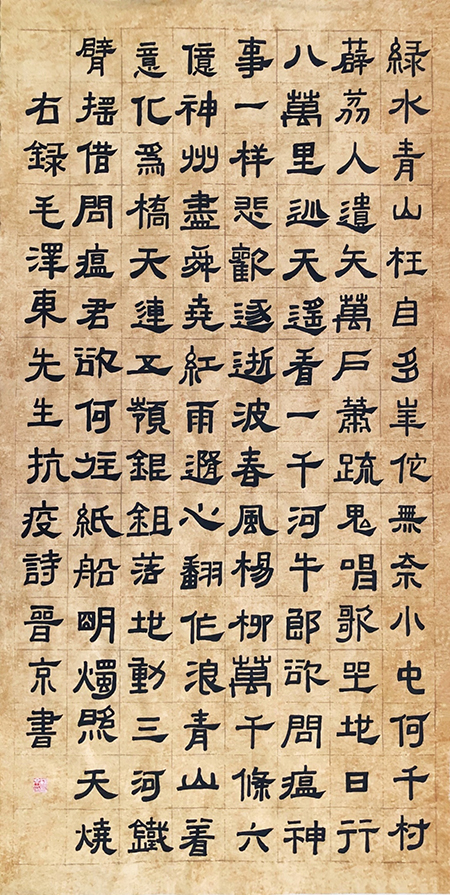 緑水青山枉自多崋佗無奈小虫何千村
薜荔人遺矢萬戶蕭疏鬼唱歌坐地日行
八萬里巡天遥看一千河牛郎欲問瘟神
事一样悲歡逐逝波春風楊柳萬千條六
億神州盡舜堯紅雨隨心翻作浪青山着
意化爲橋天連五嶺銀鉏落地動三河鐵
臂摇借問瘟君欲何往紙船明燭照天燒
右録毛澤東先生抗疫詩晉京書